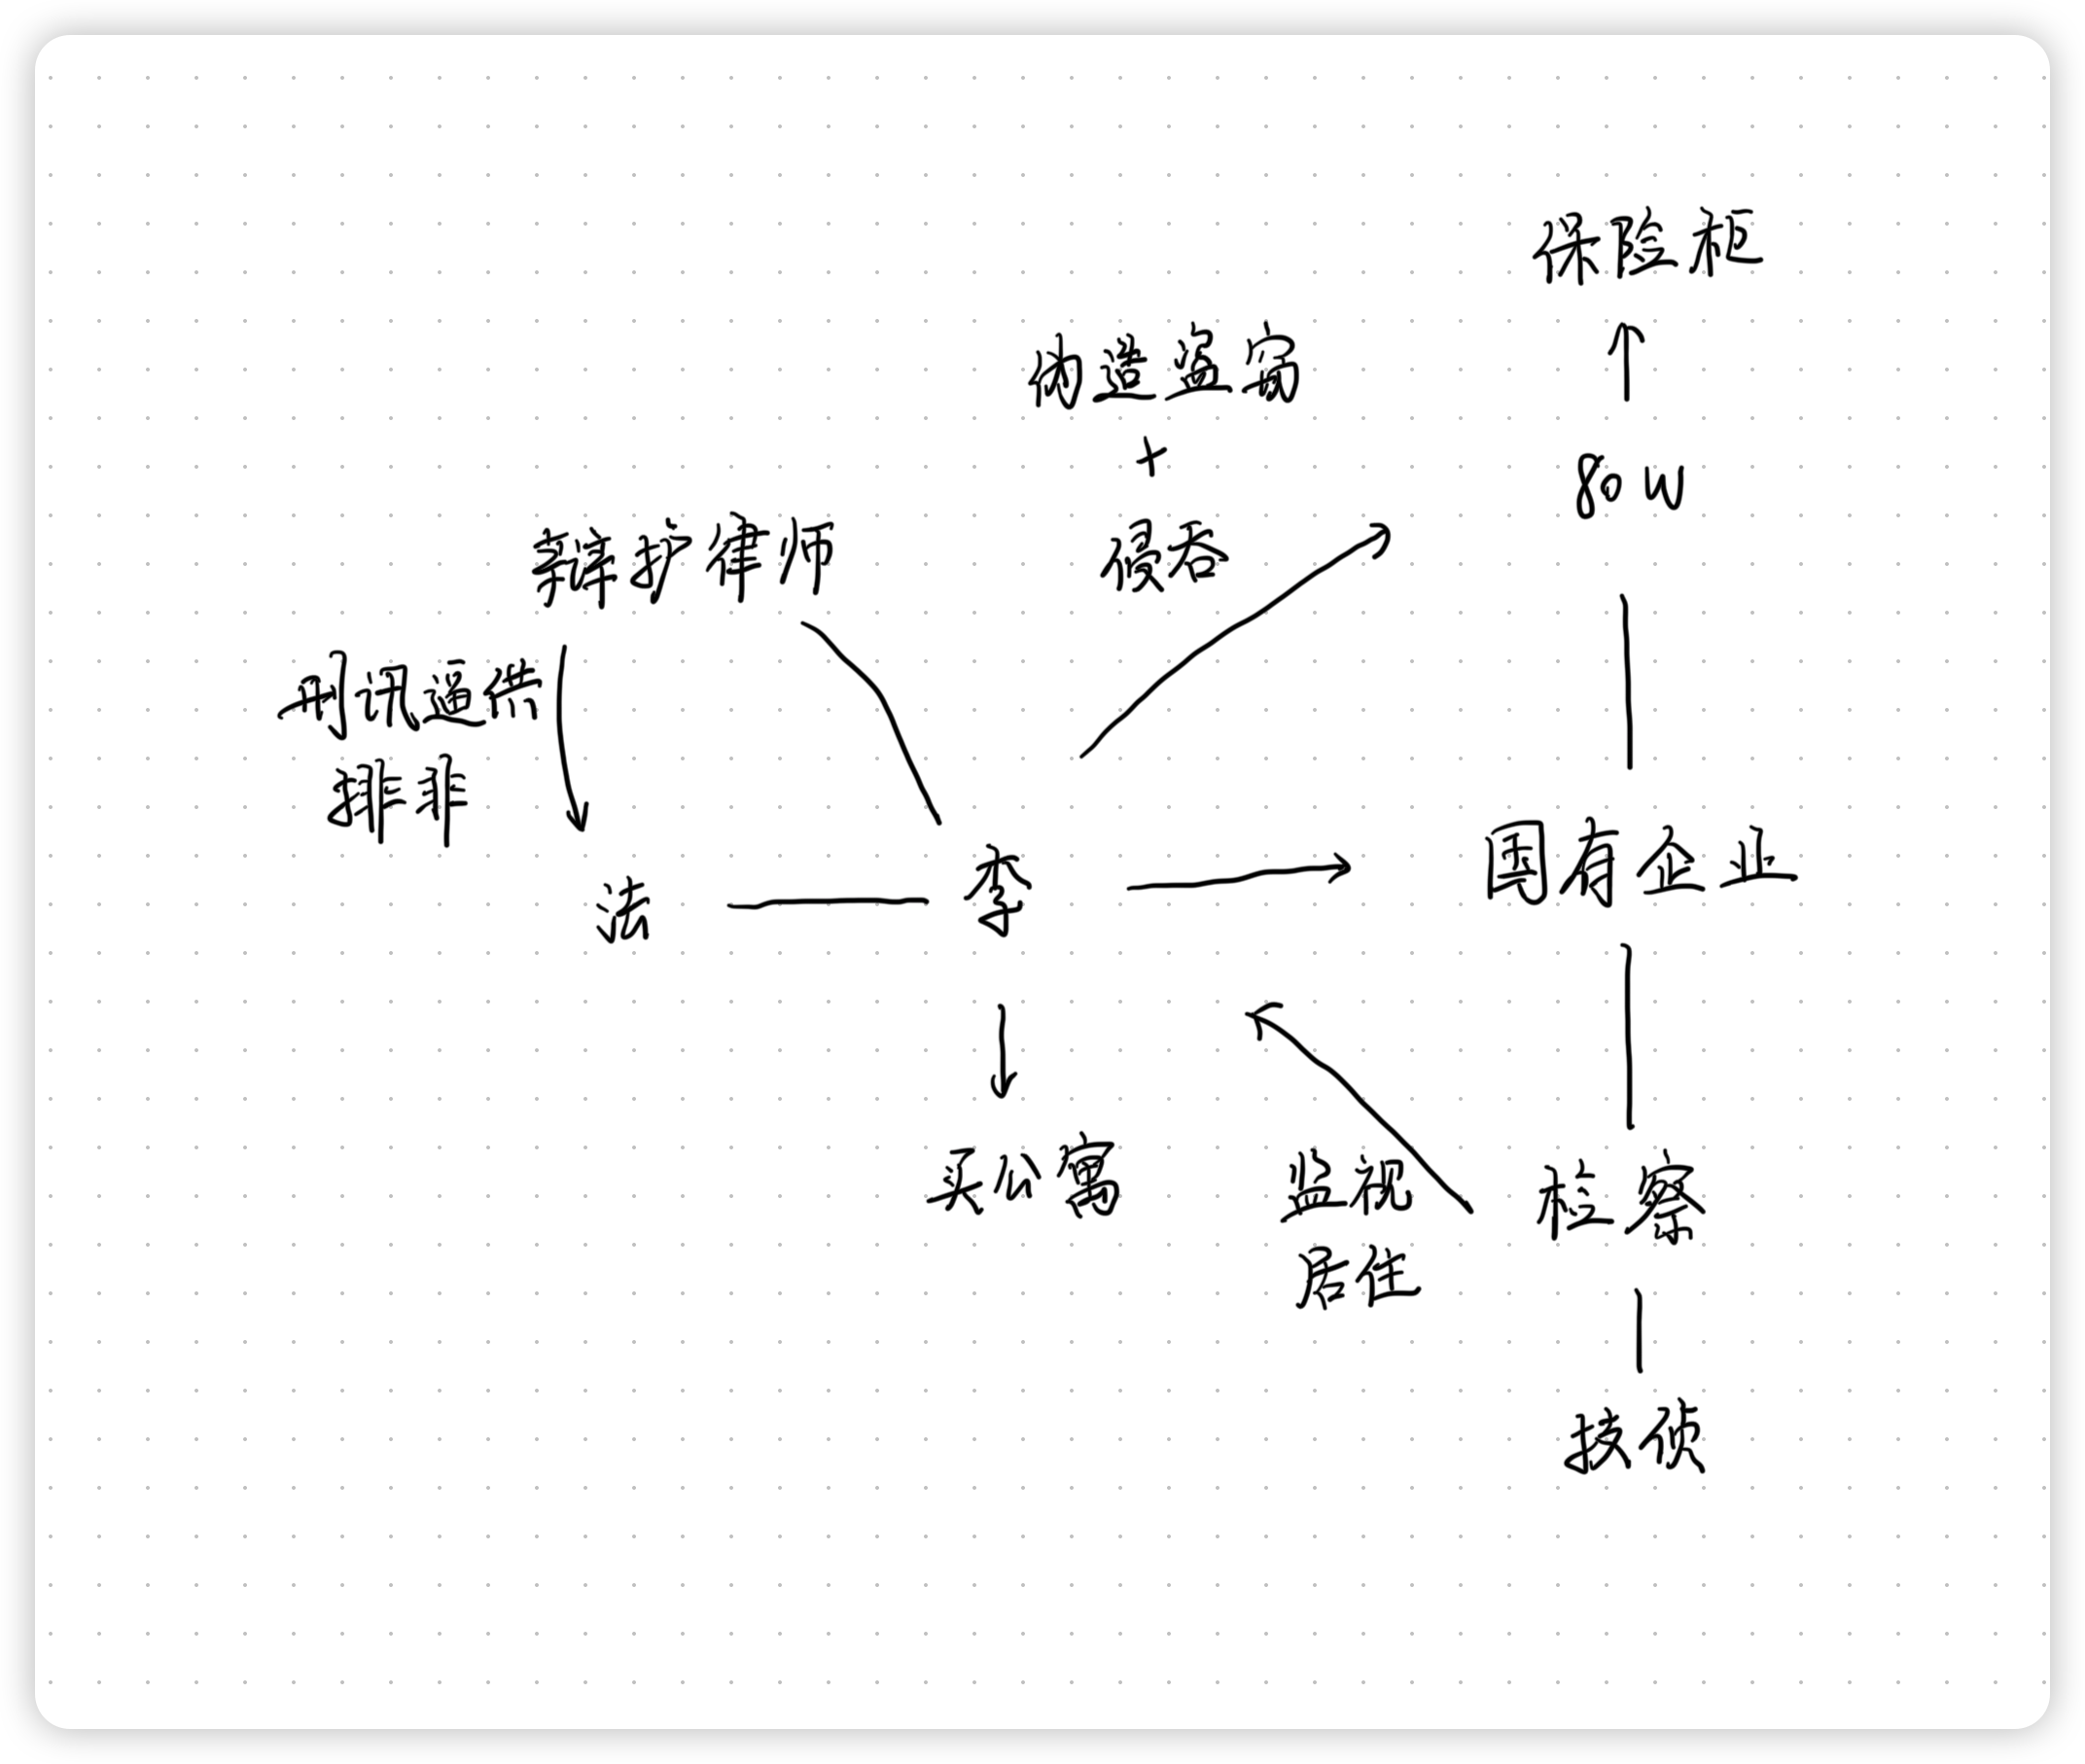 保险柜
伪造盗窃
+
80W
侵吞
辩护律师
刑讯逼供
排非
法
李
国有企业
买公寓
监视
居住
检察
技侦